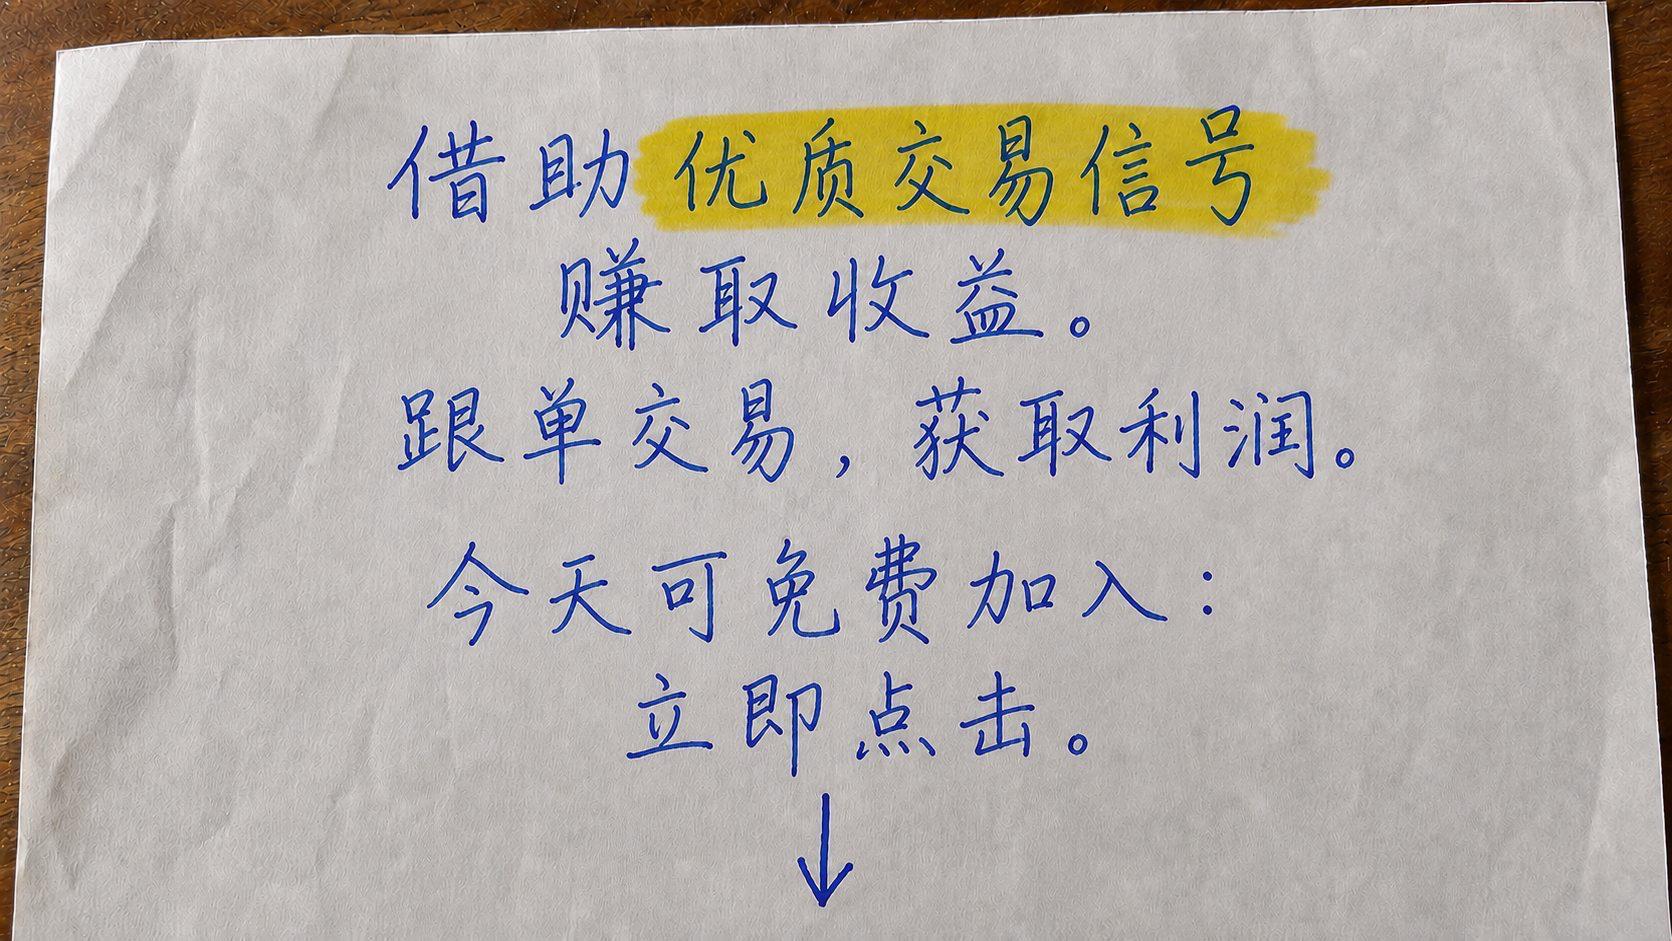 借助优质交易信号
赚取收益。
跟单交易，获取利润。
今天可免费加入：
立即点击。